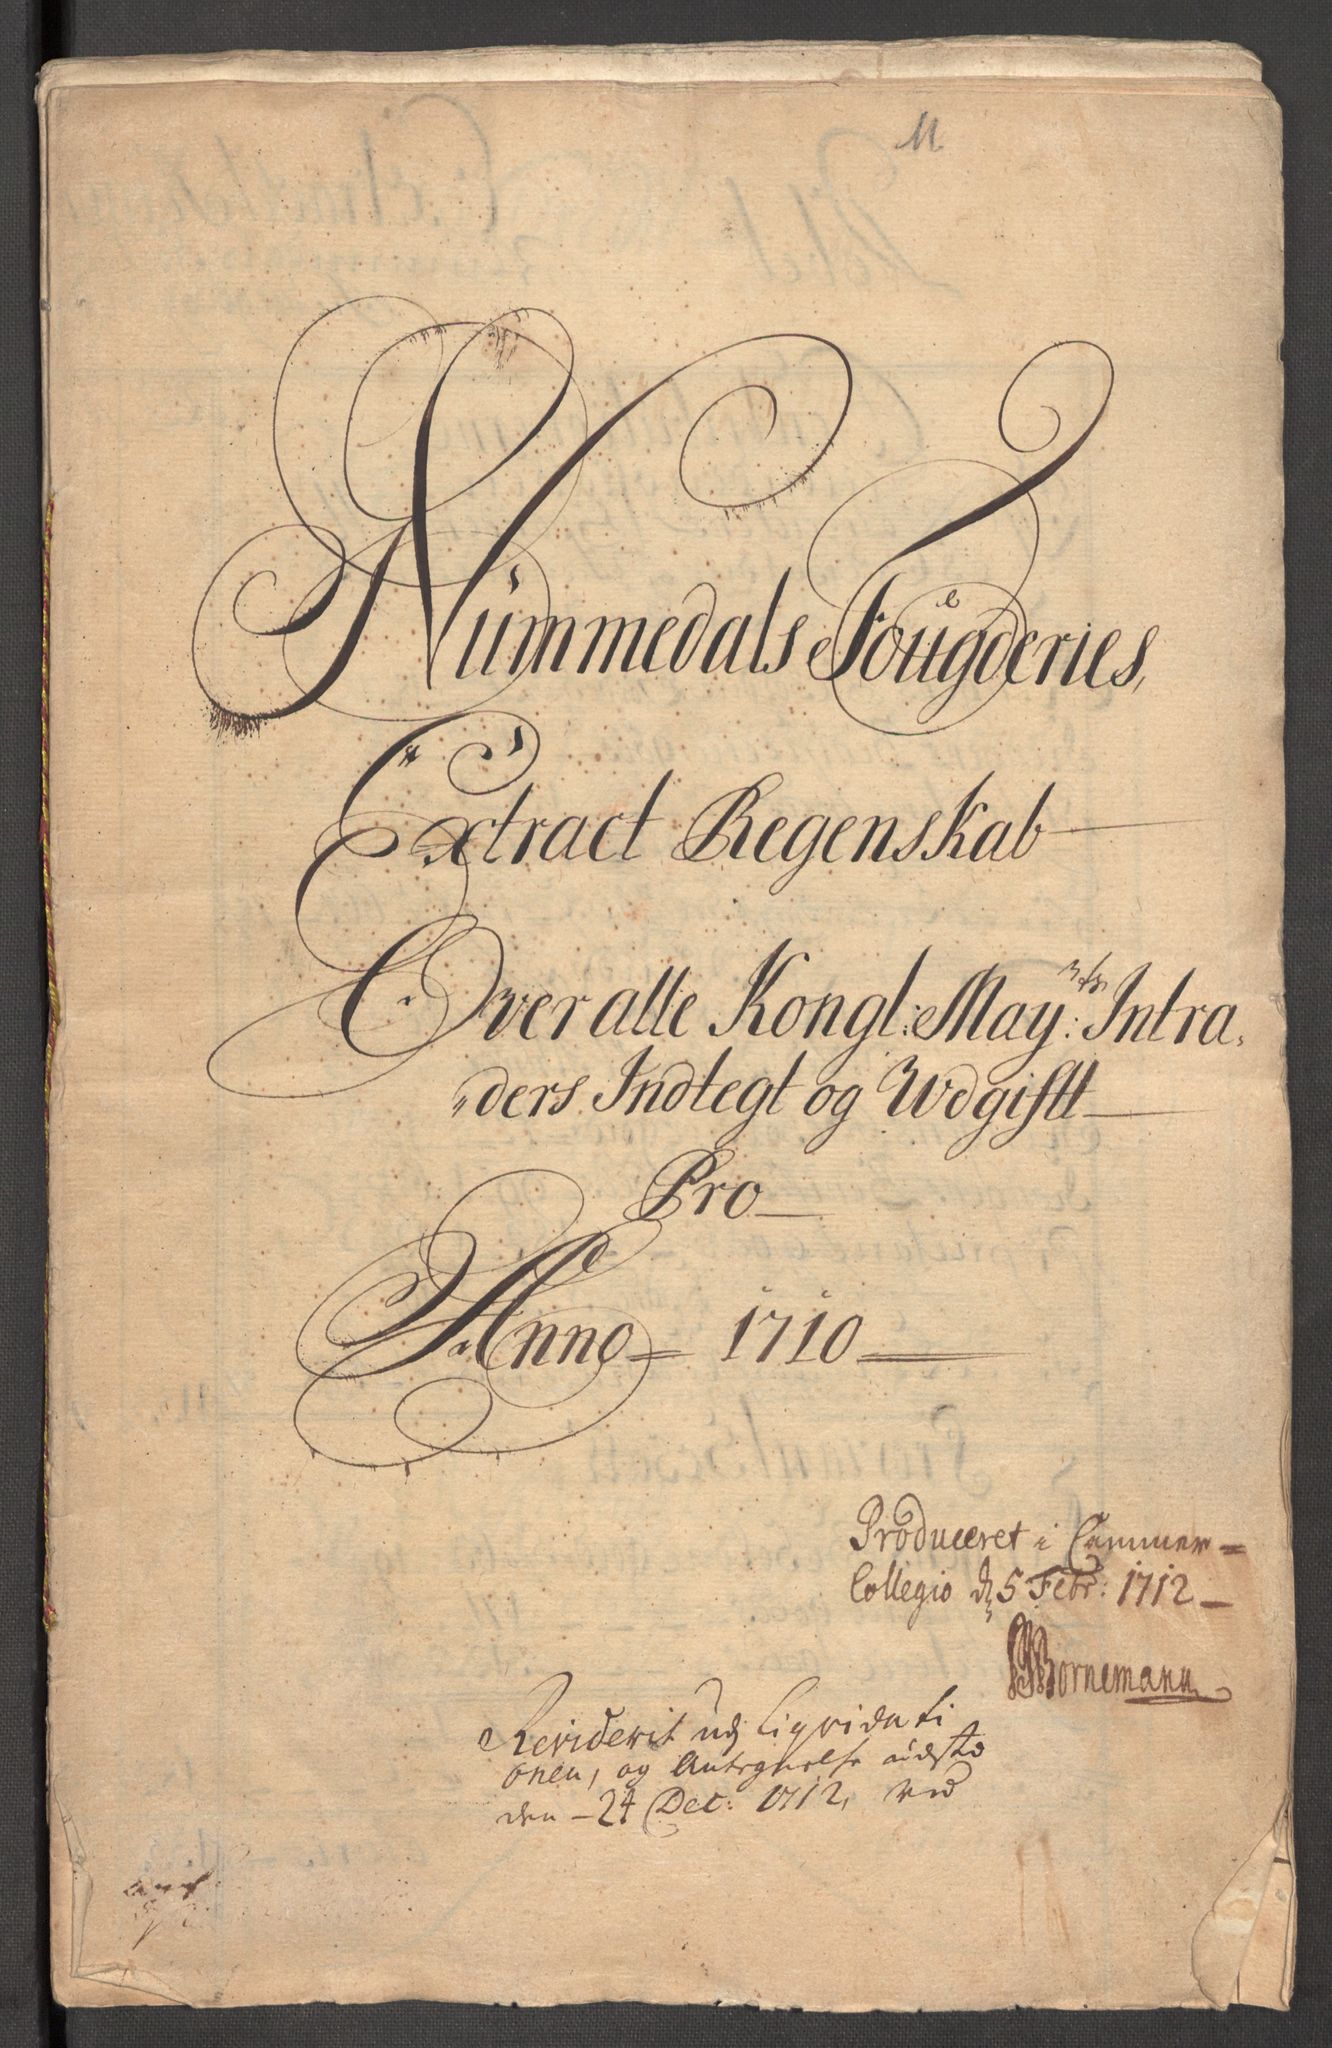 M
Nümmedals Fougderies,
Extract Regenskab
Over alle Kongl: May:ts Intra,
„ders Indtegt og Udgifft
Pro
Anno 1710
Produceret i Cammer=
Collegio d 5 Febr: 1712
Bornemann
Reviderit udj Liqvidati
onen, og Antegnelse udsted
den 24 Dec: 1712, ved